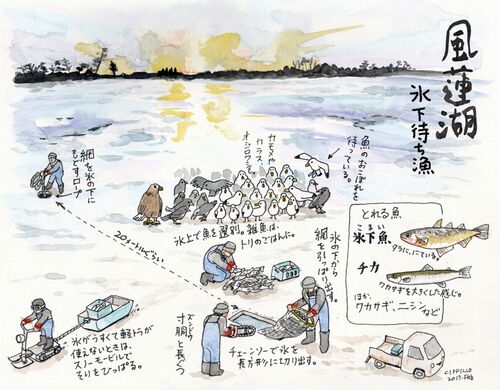 風蓮湖
氷下待ち漁
魚のおこぼれを
待っている。
カモメや
カラス、
オジロワシも。
網を氷の下に
もどすロープ
20メートルぐらい
氷上で魚を選別。雑魚は、
トリのごはんに。
氷の下から
網を引っぱり出す。
とれる魚
こまい
氷下魚
タラに、にている。
チカ
ワカサギを大きくした感じ。
ほか、
ワカサギ、ニシン
など
氷がうすくて軽トラが
使えないときは、
スノーモービルで
そりをひっぱる。
ズンドウ
寸胴と長ぐつ
チェーンソーで氷を
長方形に切り出す。
CIPPILLO
2017.Feb